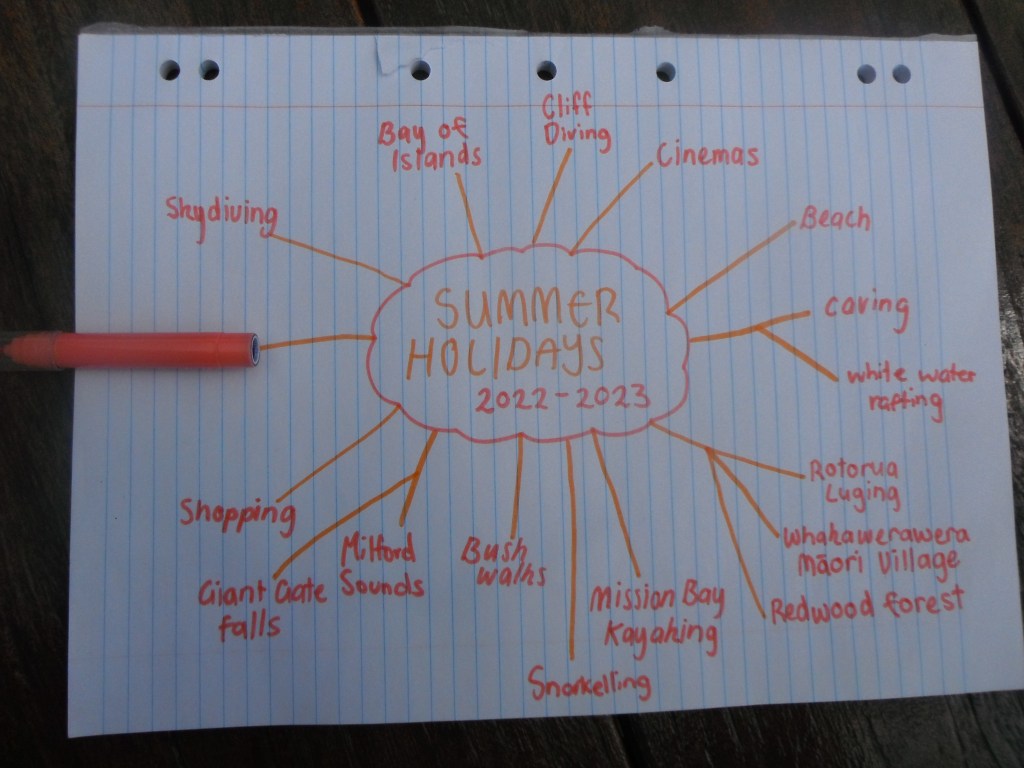 Cliff
Diving
Bay of
Islands
Cinemas
Skydiving
Beach
SUMMER
HOLIDAYS
2022-2023
caving
white water
rafting
Rotorua
Luging
Shopping
Whakawerawera
Māori Village
Milford
Sounds
Bush
walks
Giant Gate
falls
Mission Bay
Kayaking
Redwood forest
Snorkelling